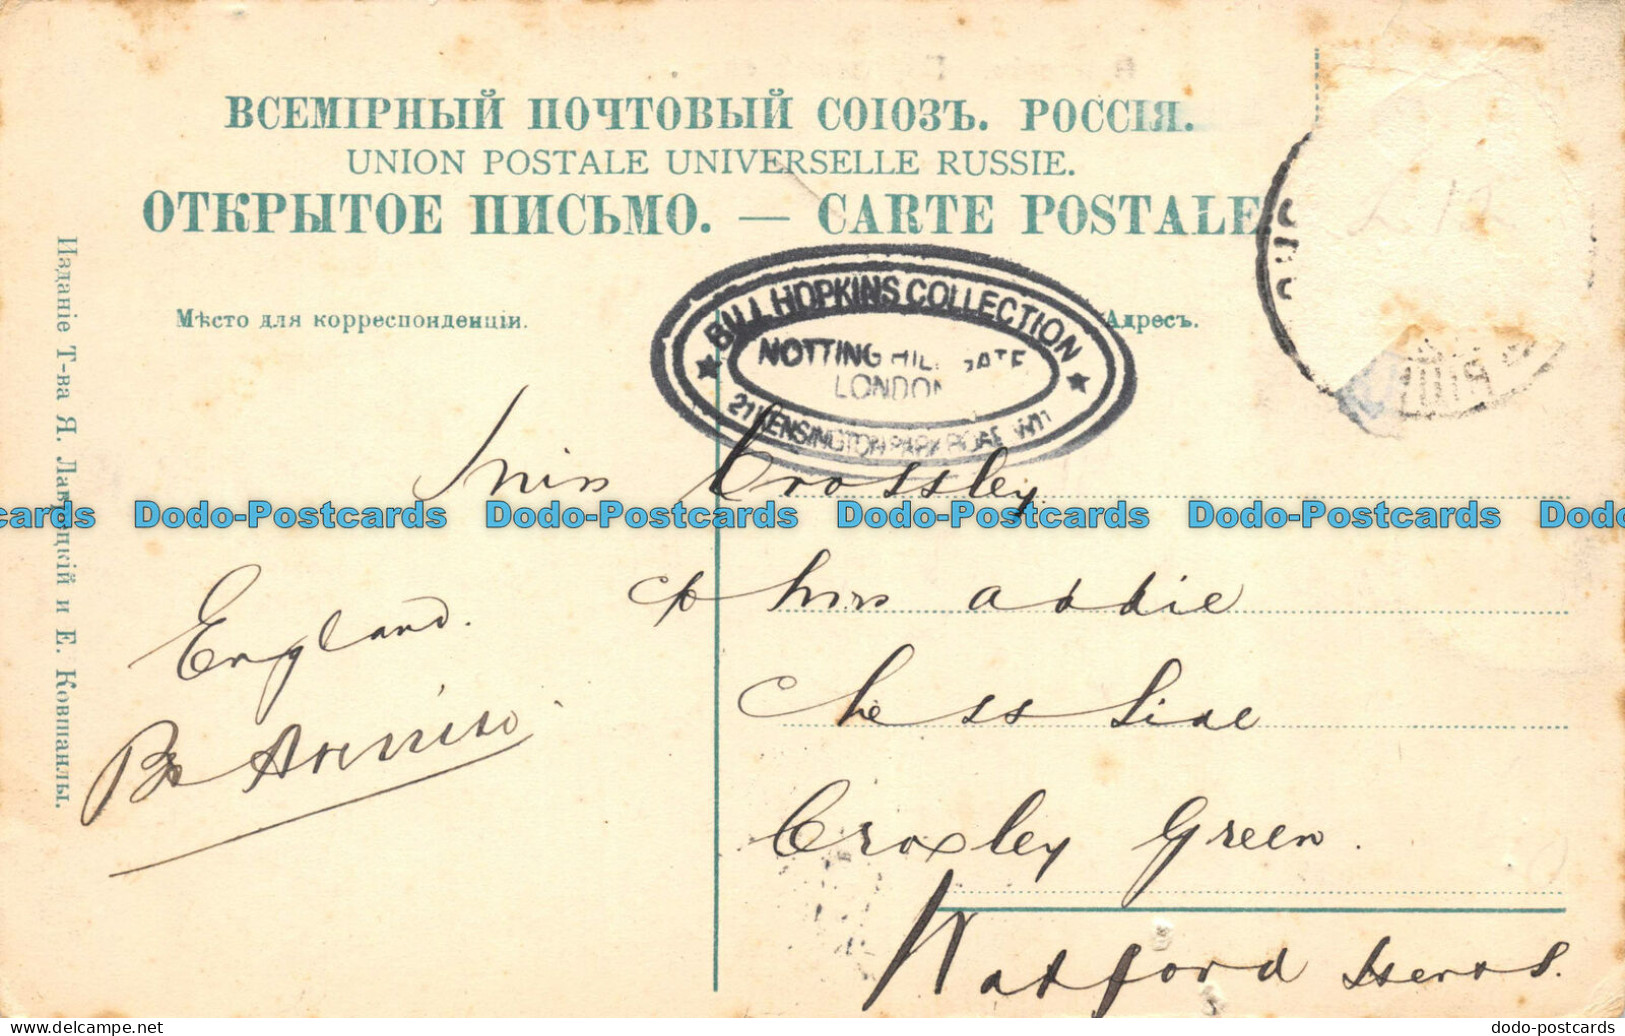 ВСЕМІРНЫЙ ПОЧТОВЫЙ СОЮЗЪ. РОССІЯ.
UNION POSTALE UNIVERSELLE RUSSIE.
ОТКРЫТОЕ ПИСЬМО. — CARTE POSTALE
Мѣсто для корреспонденціи.
Адресъ.
BILL HOPKINS COLLECTION
NOTTING HILL GATE
LONDON
21 KENSINGTON PARK ROAD W11
Изданіе Т-ва Я. Лавецкій и Е. Ковшанлы.
Miss Crossley
c/o Mrs Addie
Chess Side
Croxley Green.
Watford Herts.
England.
Въ Англію
cards Dodo-Postcards Dodo-Postcards Dodo-Postcards Dodo-Postcards Dodo
dodo-postcards.com
dodo-postcards